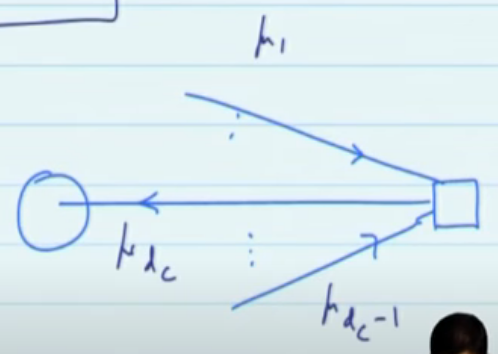 μ₁
μ_{d_c}
μ_{d_c-1}